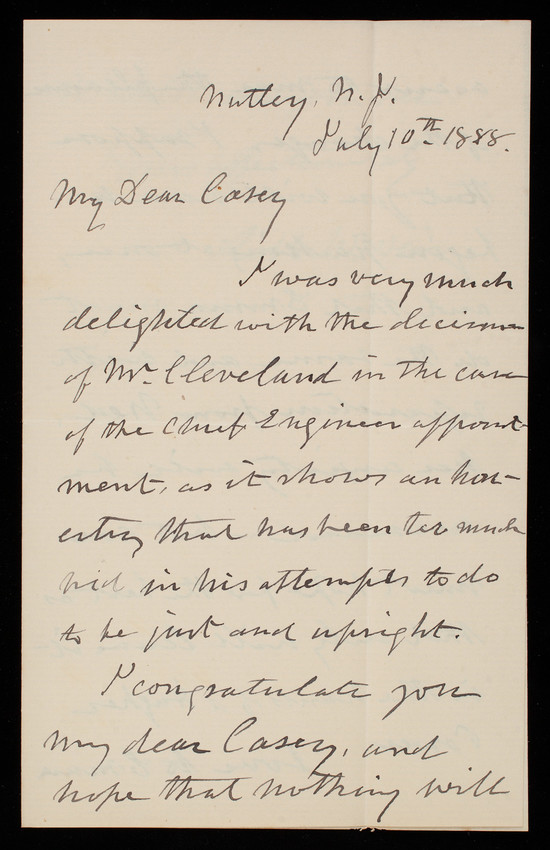 Nutley, N.J.
July 10th 1888.
My Dear Casey
I was very much
delighted with the decision
of Mr. Cleveland in the case
of the Chief Engineer appoint-
ment, as it shows an hon-
esty that has been too much
hid in his attempts to do
to be just and upright.
I congratulate you
my dear Casey, and
hope that nothing will